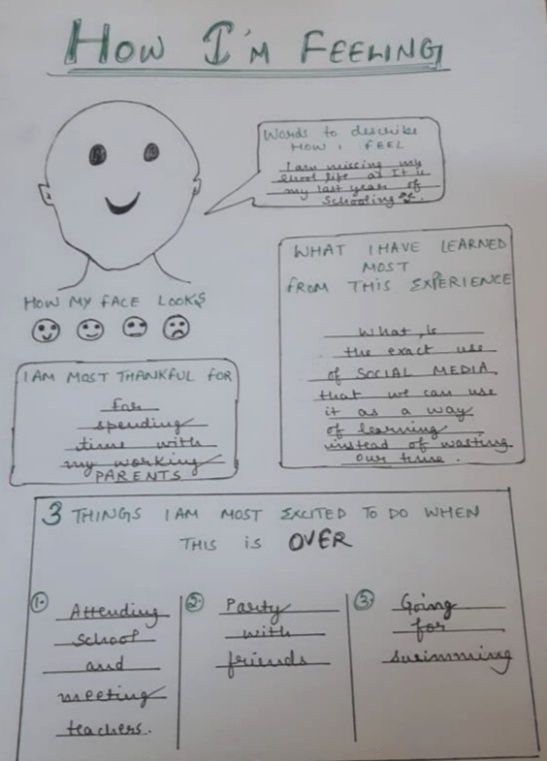 HOW I'M FEELING
Words to describe
HOW I FEEL
I am missing my
school life as It is
my last year of
Schooling
HOW MY FACE LOOKS
WHAT I HAVE LEARNED
MOST
FROM THIS EXPERIENCE
What is
the exact use
of SOCIAL MEDIA,
that we can use
it as a way
of learning
instead of wasting
our time.
I AM MOST THANKFUL FOR
for
spending
time with
my working
PARENTS
3 THINGS I AM MOST EXCITED TO DO WHEN
THIS is OVER
1. Attending
school
and
meeting
teachers.
2. Party
with
friends
3. Going
for
swimming